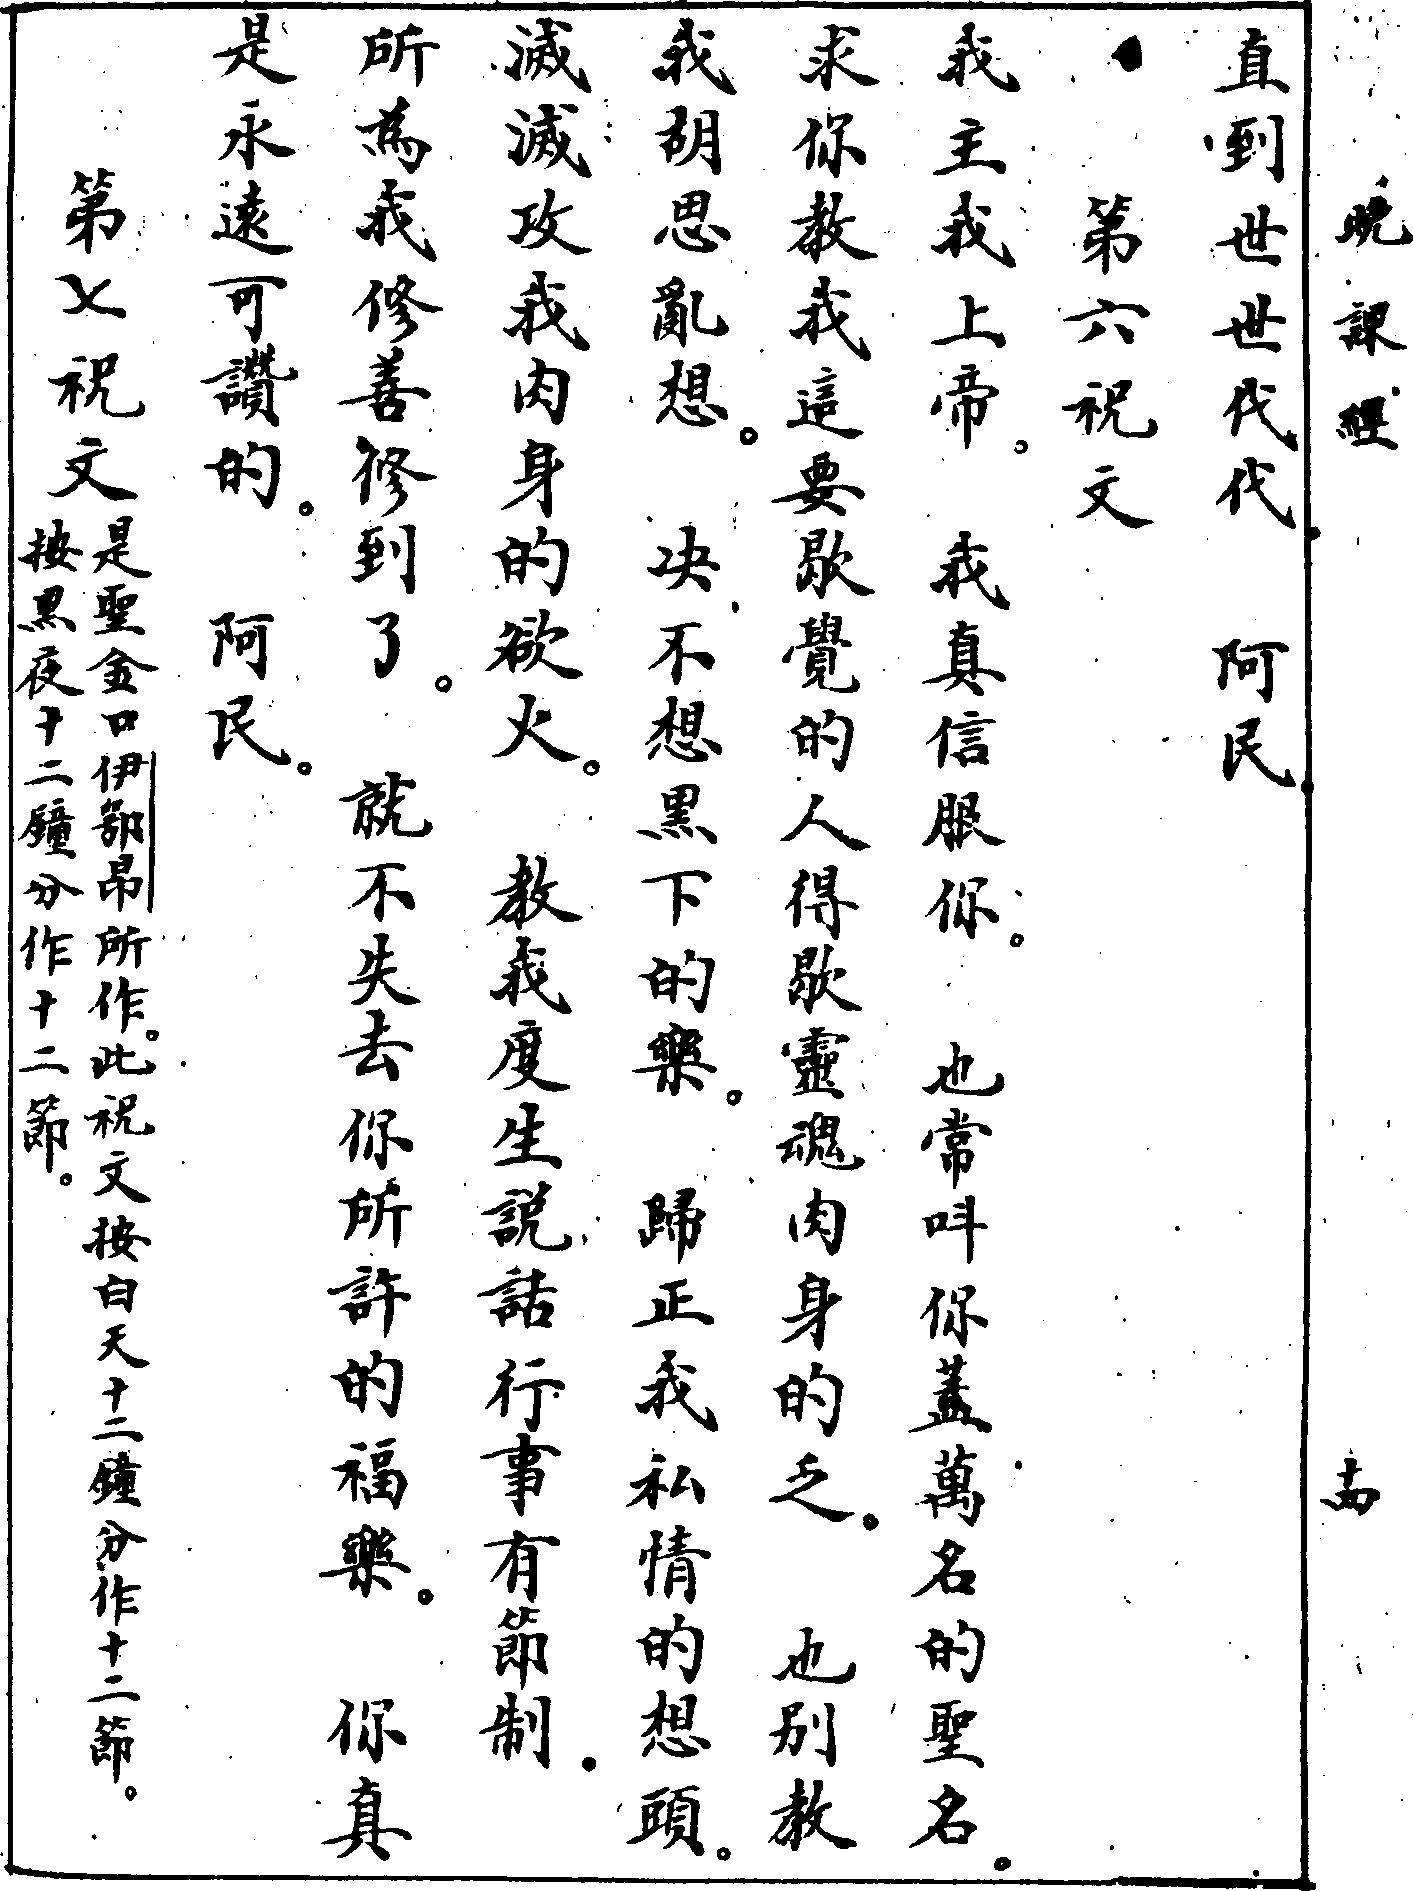 晚課經
十四
直到世世代代。阿民。
第六祝文
我主我上帝。我真信服你。也常呌你蓋萬名的聖名。
求你教我這要歇覺的人得歇靈魂肉身的乏。也別教
我胡思亂想。决不想黑下的樂。歸正我私情的想頭。
滅滅攻我肉身的欲火。教我度生説話行事有節制。
所為我修善修到了。就不失去你所許的福樂。你真
是永遠可讚的。阿民。
第七祝文
是聖金口伊鄒昂所作。此祝文按白天十二鐘分作十二節。
按黑夜十二鐘分作十二節。